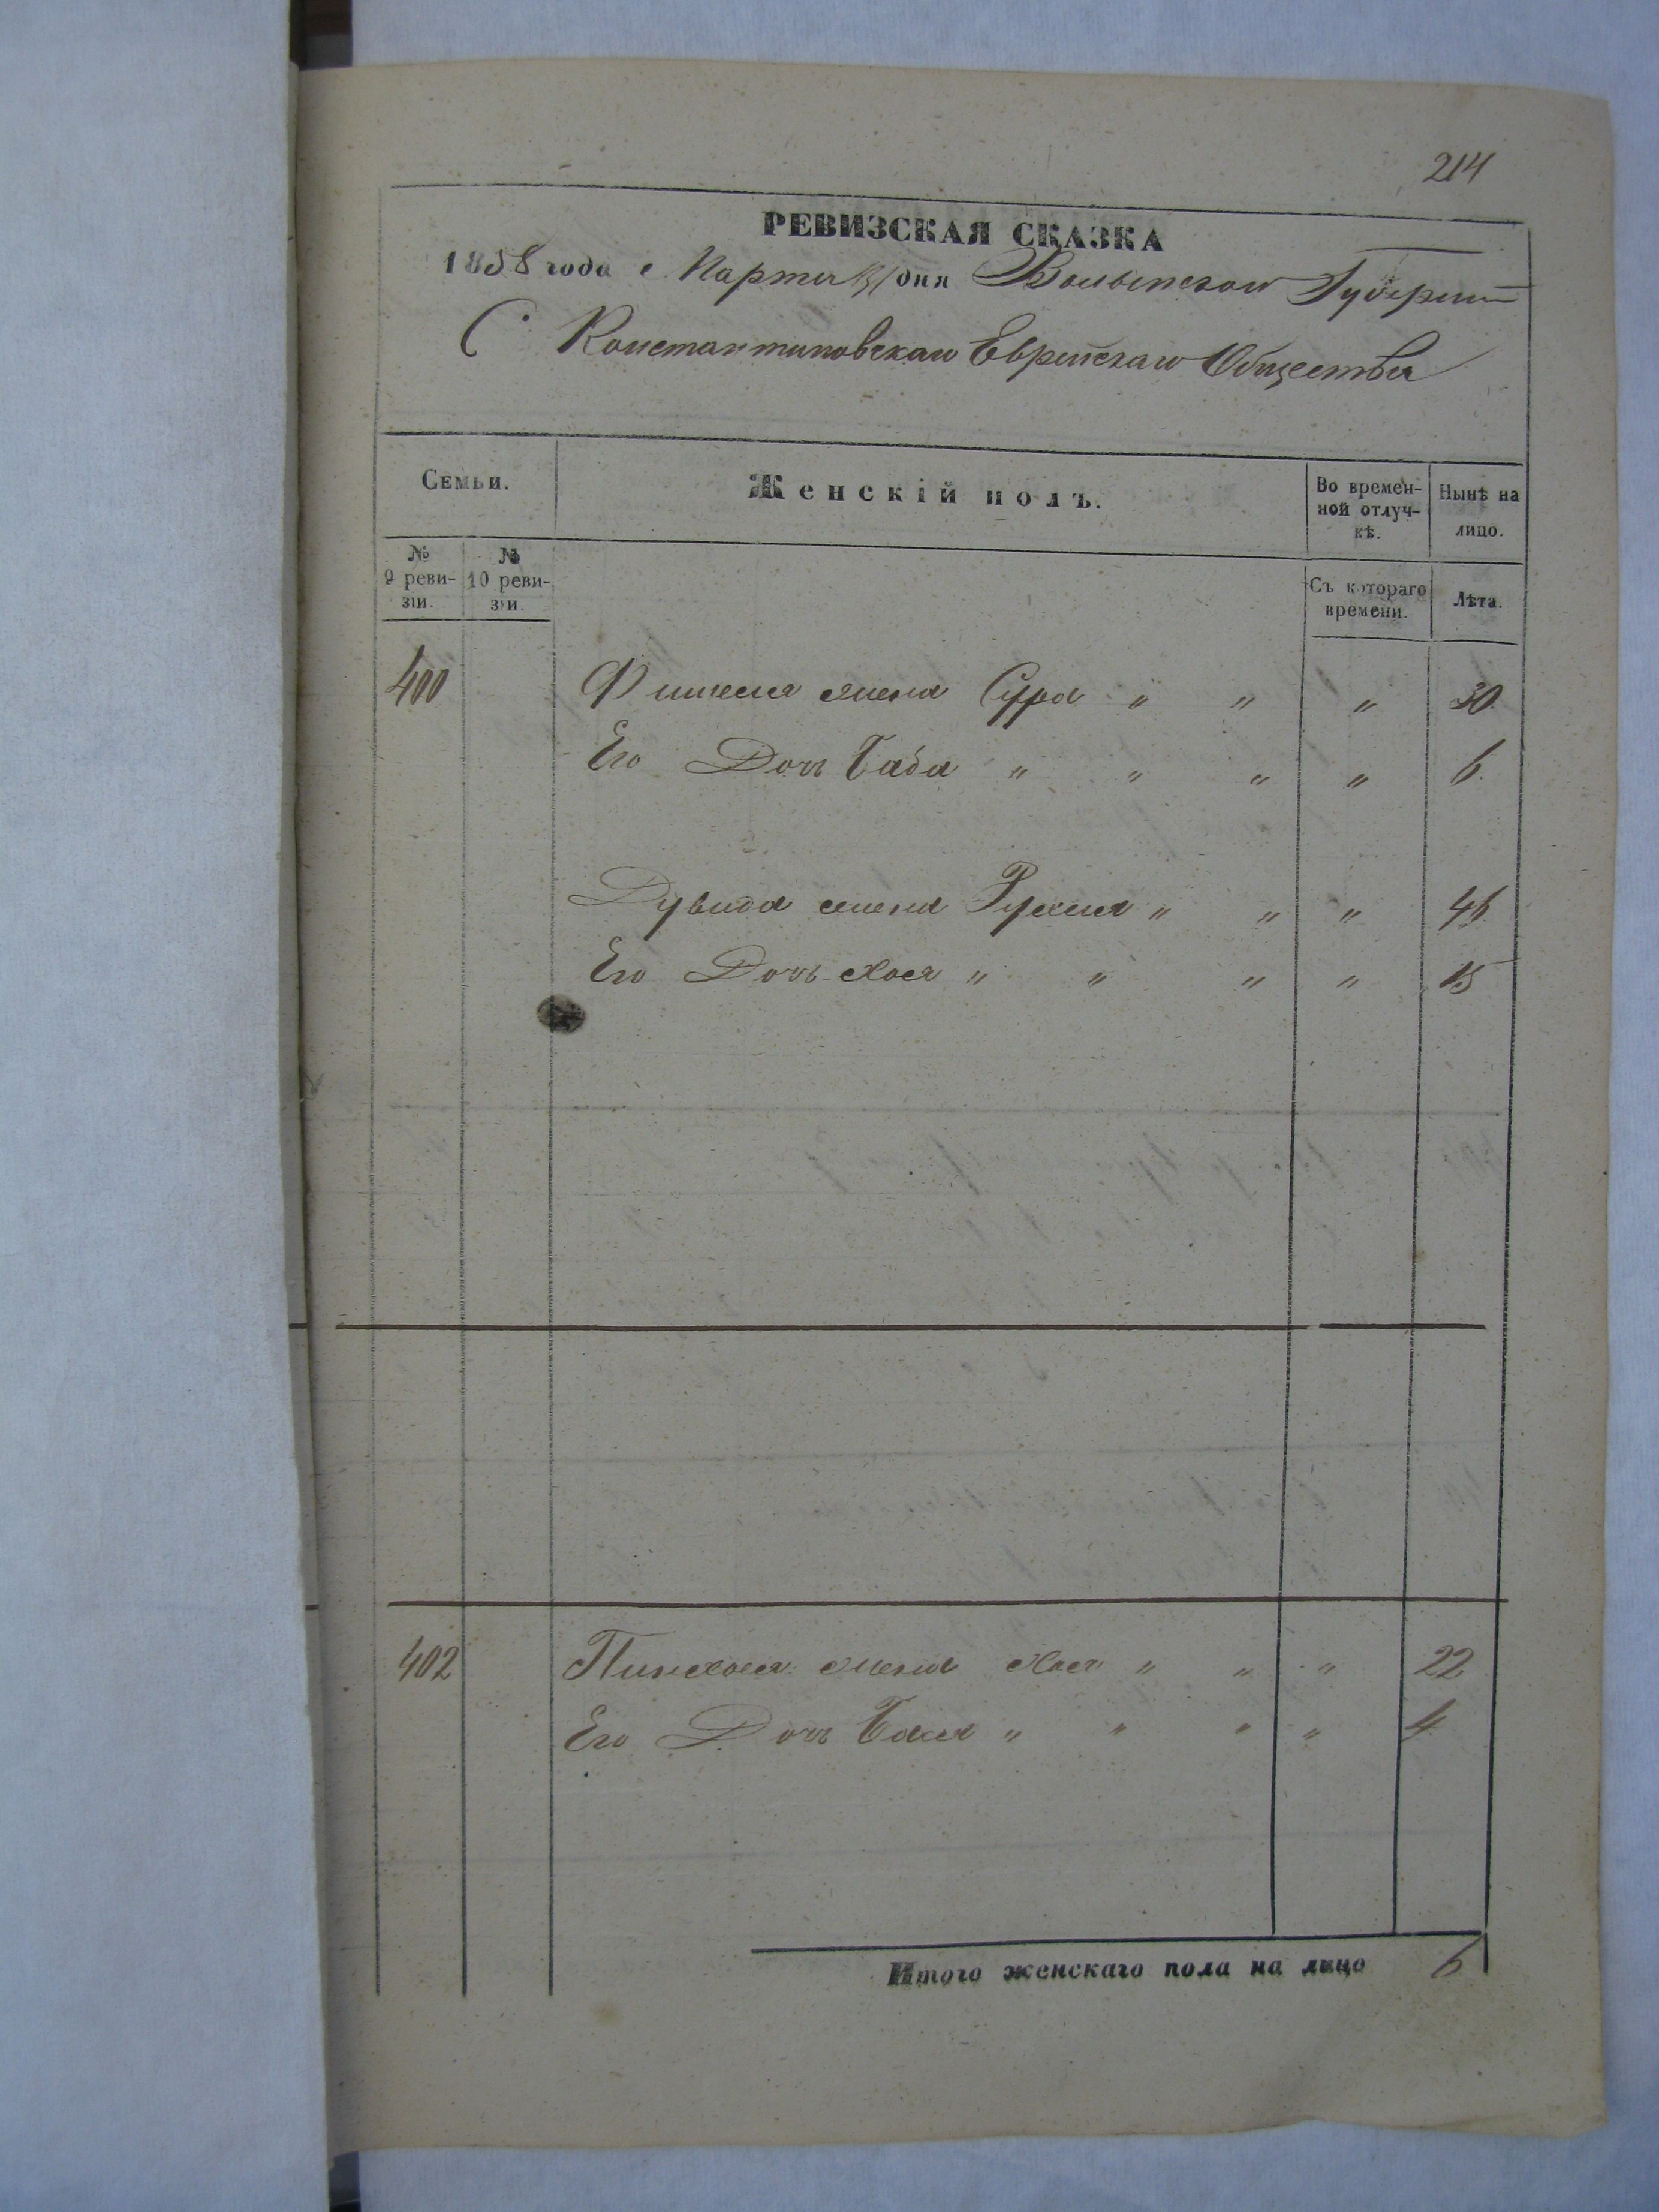 214
РЕВИЗСКАЯ СКАЗКА
1858 года Марта дня Волынской Губернии
С Константиновскаго Еврейскаго Общества
Семьи.
Женскій полъ.
Во времен-
ной отлуч-
кѣ.
Нынѣ на
лицо.
№
9 реви-
зіи.
№
10 реви-
зіи.
Съ котораго
времени.
Лѣта.
400 Фишеля жена Сура " " " 30
Его Дочь Баба " " " " 6
Дувида жена Рухля " " " 46
Его Дочь Хася " " " " 15
402 Пинхаса жена Хая " " " 22
Его Дочь Бася " " " " 4
Итого женскаго пола на лицо 6